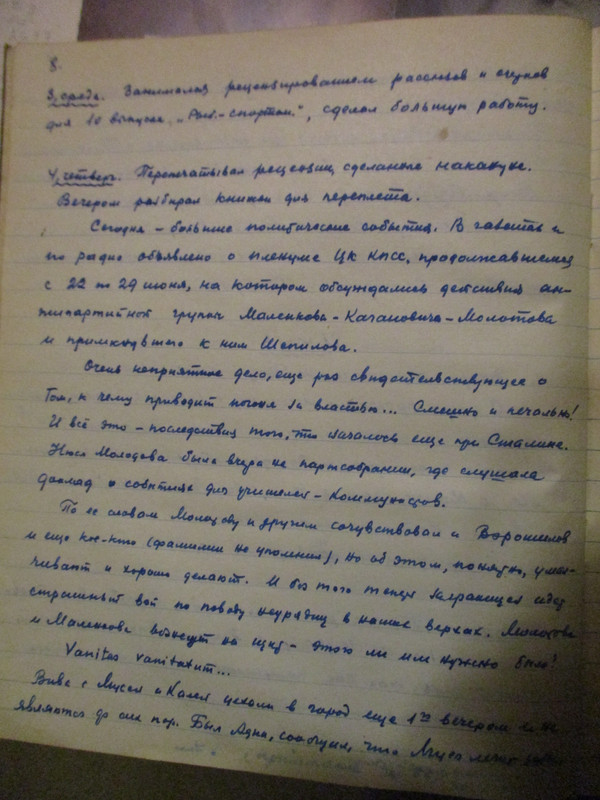 8.
3, среда. Занимался рецензированием рассказов и очерков
для 10 выпуска „Рыб.-спортсм.", сделал большую работу.
4, четверг. Перепечатывал рецензии, сделанные накануне.
Вечером разбирал книжки для переплета.
Сегодня – большие политические события. В газетах и
по радио объявлено о пленуме ЦК КПСС, продолжавшемся
с 22 по 29 июня, на котором обсуждались действия ан-
типартийной группы Маленкова-Кагановича-Молотова
и примкнувшего к ним Шепилова.
Очень неприятное дело, еще раз свидетельствующее о
том, к чему приводит погоня за властью... Смешно и печально!
И всё это – последствия того, что началось еще при Сталине.
Нюся Молодова была вчера на партсобрании, где слушала
доклад о событиях для учителей-коммунистов.
По ее словам Молотову и другим сочувствовал и Ворошилов
и еще кое-кто (фамилии не упомнил), но об этом, понятно, умал-
чивают и хорошо делают. И без того теперь заграницей идет
страшный вой по поводу неурядиц в наших верхах. Молотова
и Маленкова вознесут на щит – этого ли им нужно было!
Vanitas vanitatum...
Вива с Мусей и Калей уехали в город еще 1го вечером и не
являются до сих пор. Был Адик, сообщил, что Муся